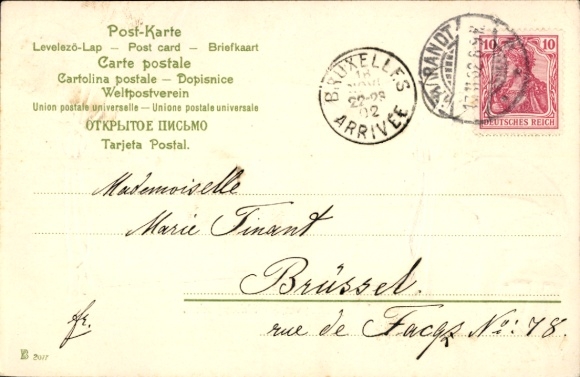 Post-Karte
Levelező-Lap – Post card – Briefkaart
Carte postale
Cartolina postale – Dopisnice
Weltpostverein
Union postale universelle – Unione postale universale
ОТКРЫТОЕ ПИСЬМО
Tarjeta Postal.
BRUXELLES
18
22-23
02
ARRIVÉE
10 10
DEUTSCHES REICH
Mademoiselle
Marie Tinant
Brüssel.
fr.
rue de Facqz No: 78.